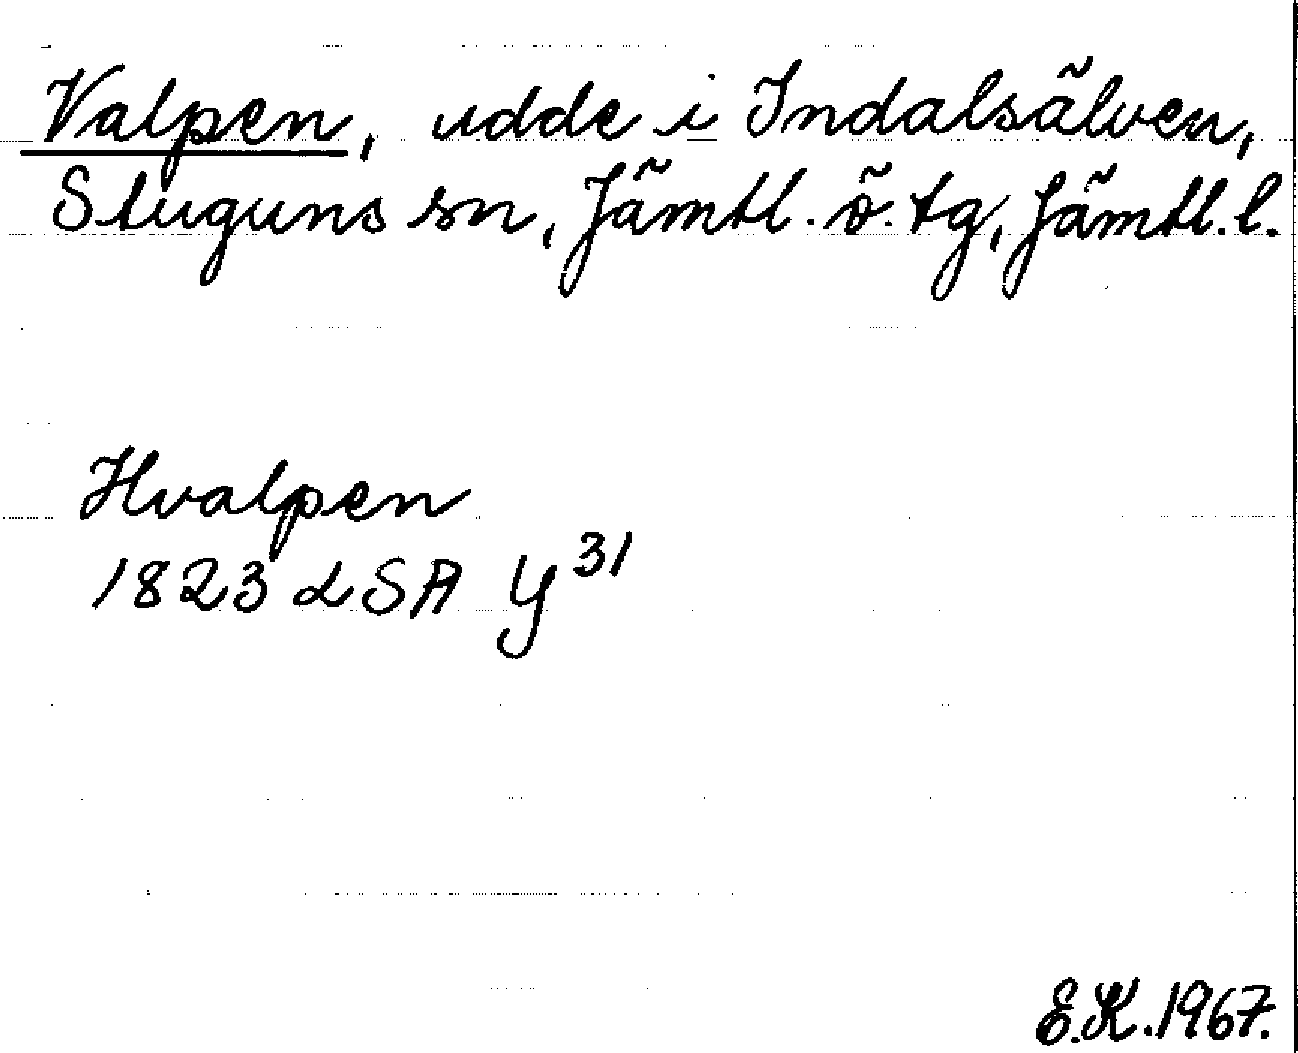 Valpen, udde i Indalsälven,
Stuguns sn, Jämtl. ö. tg, Jämtl. l.
Hvalpen
1823 LSA Y 31
E.K. 1967.